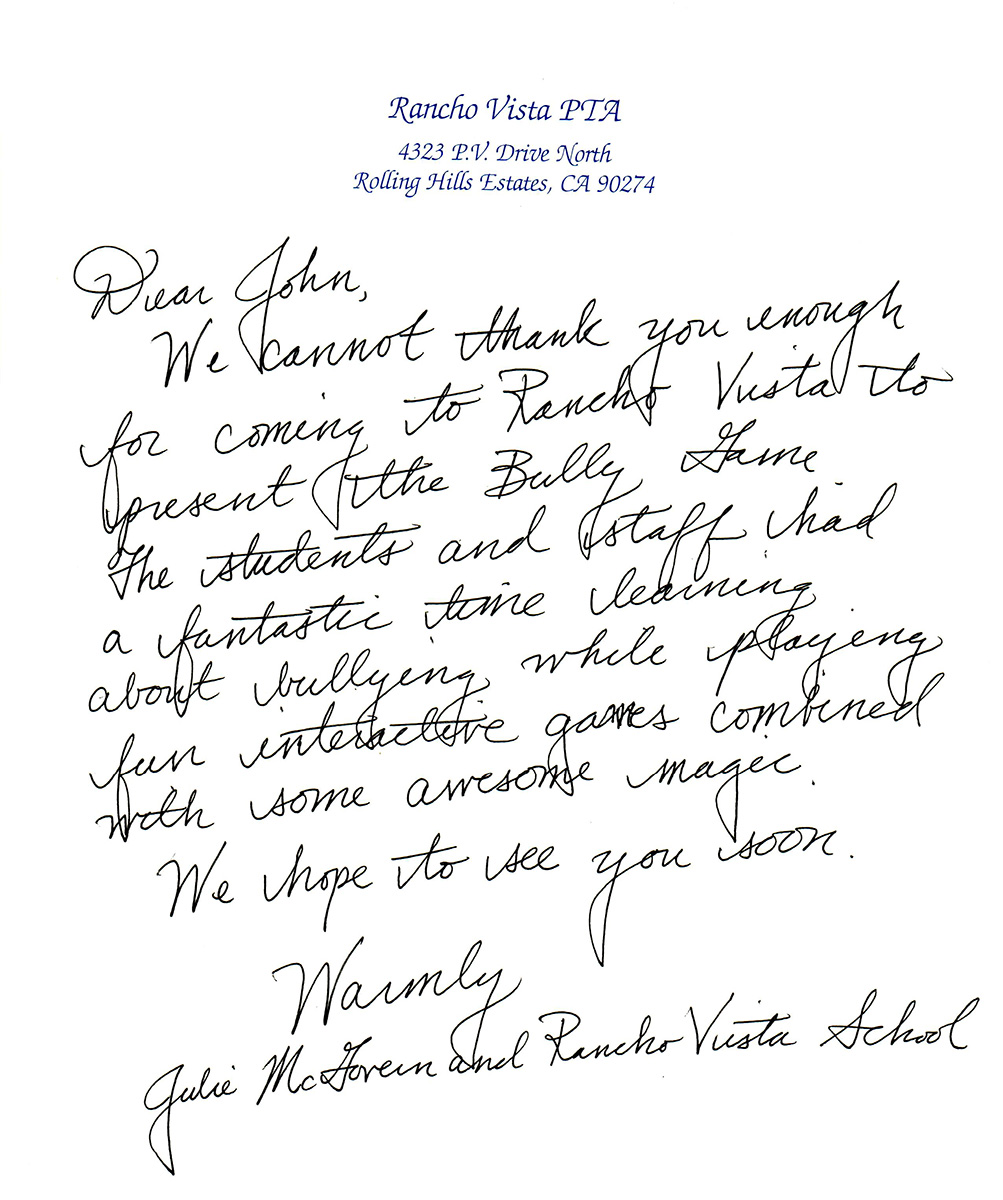 Rancho Vista PTA
4323 P.V. Drive North
Rolling Hills Estates, CA 90274
Dear John,
We cannot thank you enough
for coming to Rancho Vista to
present the Bully Game
The students and staff had
a fantastic time learning
about bullying while playing
fun interactive games combined
with some awesome magic.
We hope to see you soon.
Warmly
Julie McGovern and Rancho Vista School